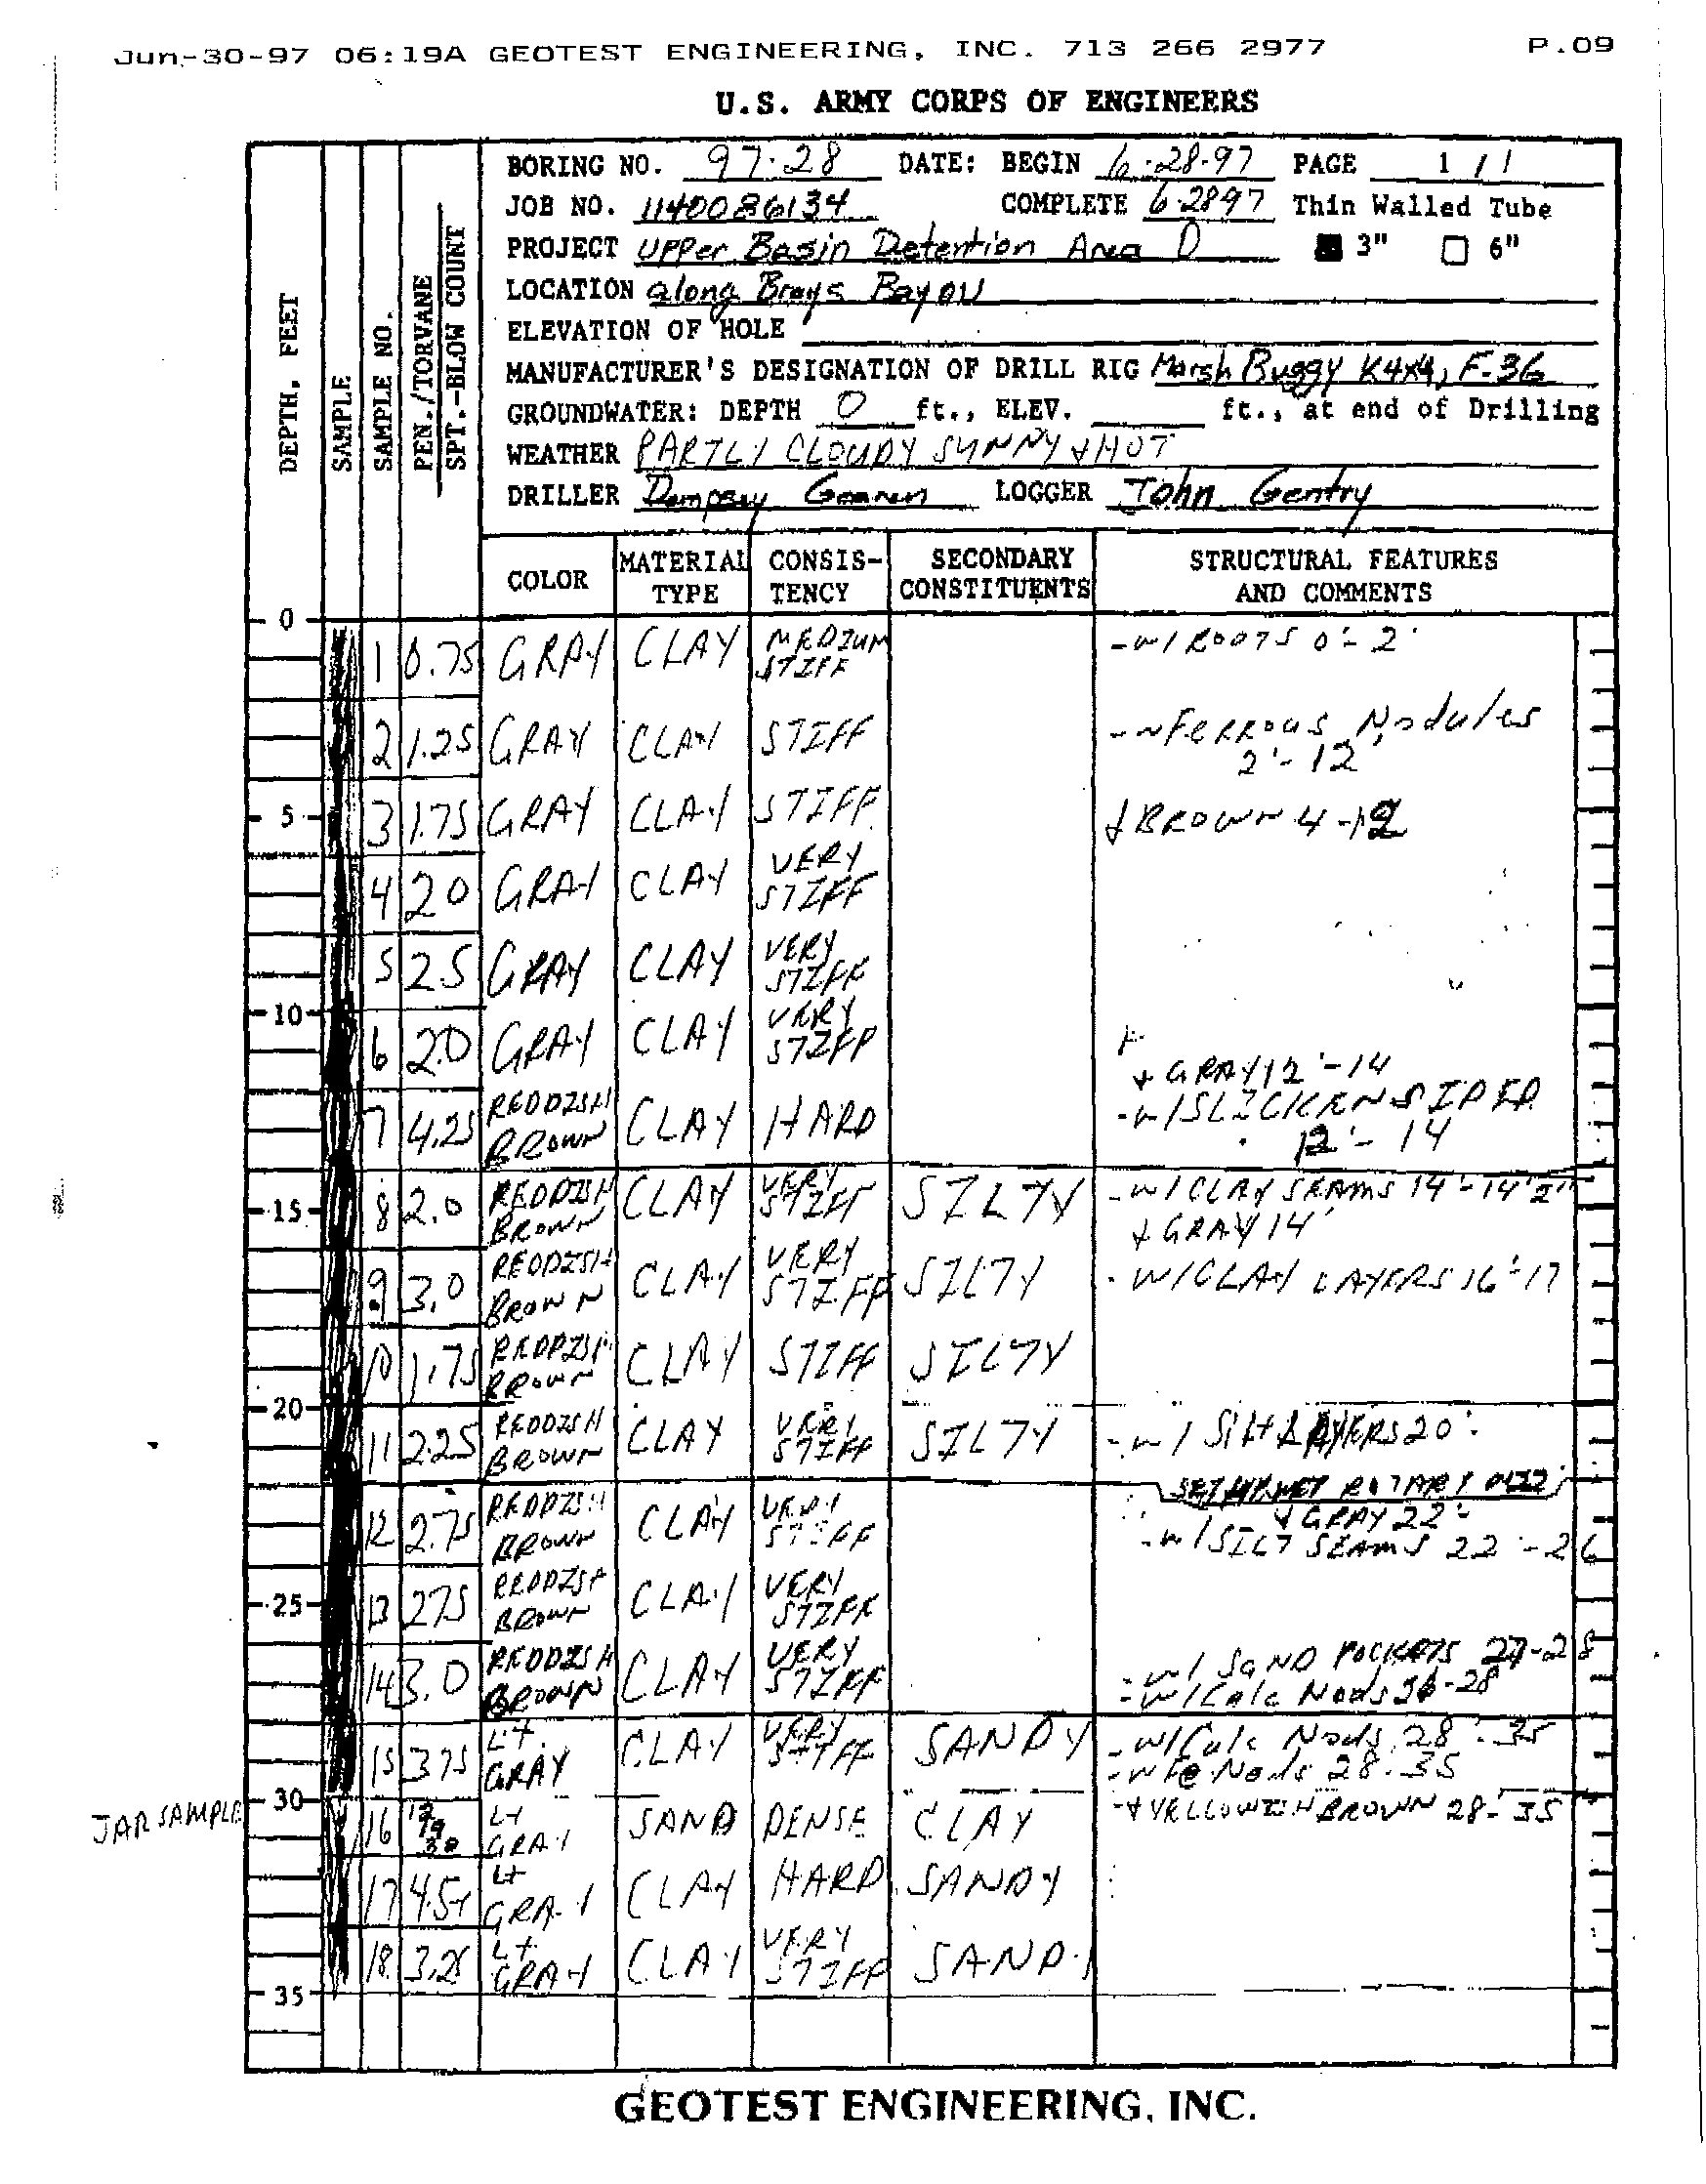 Jun-30-97 06:19A GEOTEST ENGINEERING, INC. 713 266 2977 P.09
U.S. ARMY CORPS OF ENGINEERS
BORING NO. 97-28 DATE: BEGIN 6-28-97 PAGE 1 / 1
JOB NO. 1140086134 COMPLETE 6-2897 Thin Walled Tube
PROJECT UPPer Basin Detention Area D 3" 6"
LOCATION along Brays Bayou
ELEVATION OF HOLE
MANUFACTURER'S DESIGNATION OF DRILL RIG Marsh Buggy K4x4, F-36
GROUNDWATER: DEPTH 0 ft., ELEV. ft., at end of Drilling
WEATHER PARTLY CLOUDY SUNNY + HOT
DRILLER Dempsey LOGGER John Gentry
DEPTH, FEET
SAMPLE
SAMPLE NO.
PEN./TORVANE
SPT.-BLOW COUNT
COLOR MATERIAL TYPE CONSISTENCY SECONDARY CONSTITUENTS STRUCTURAL FEATURES AND COMMENTS
0
1 0.75 GRAY CLAY MEDIUM STIFF -w/ ROOTS 0'-2'
2 1.25 GRAY CLAY STIFF -w FERROUS Nodules
2'-12'
5
3 1.75 GRAY CLAY STIFF + BROWN 4-12
4 2.0 GRAY CLAY VERY STIFF
5 2.5 GRAY CLAY VERY STIFF
10
6 2.0 GRAY CLAY VERY STIFF
+ GRAY 12'-14
7 4.25 REDDISH BROWN CLAY HARD -w/SLICKENSIDED
12'-14
15
8 2.0 REDDISH BROWN CLAY VERY STIFF SILTY -w/CLAY SEAMS 14'-14'2"
+ GRAY 14'
9 3.0 REDDISH BROWN CLAY VERY STIFF SILTY - W/CLAY LAYERS 16'-17
10 1.75 REDDISH BROWN CLAY STIFF SILTY
20
11 2.25 REDDISH BROWN CLAY VERY STIFF SILTY -w/ Silt LAYERS 20'
WET ROTARY
+ GRAY 22'
12 2.75 REDDISH BROWN CLAY VERY STIFF -w/SILT SEAMS 22'-26
25
13 2.75 REDDISH BROWN CLAY VERY STIFF
14 3.0 REDDISH BROWN CLAY VERY STIFF -w/ SAND POCKETS 27-28
-w/Calc Nods 26-28
15 3.75 Lt. GRAY CLAY VERY STIFF SANDY -w/Calc Nods 28'-35
-w Fe Nods 28-35
30
JAR SAMPLE
16 Lt GRAY SAND DENSE CLAY -+ YELLOWISH BROWN 28-35
17 4.5+ Lt GRAY CLAY HARD SANDY
18 3.25 Lt. GRAY CLAY VERY STIFF SANDY
35
GEOTEST ENGINEERING, INC.